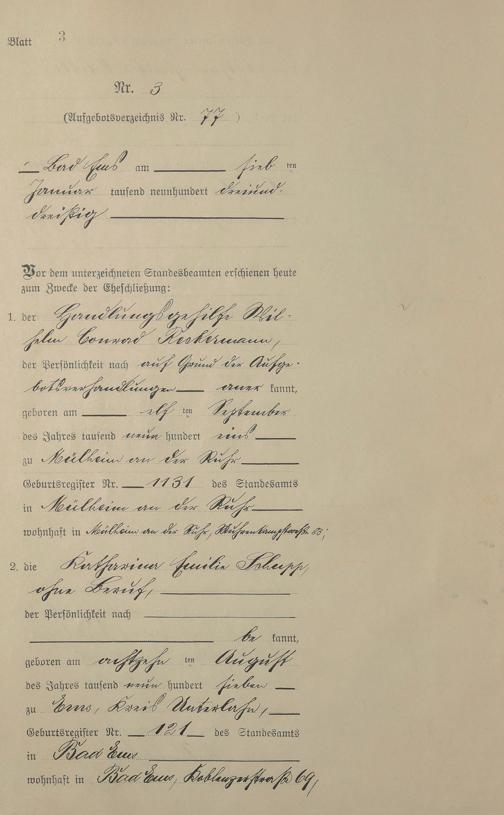 Blatt 3
Nr. 3
(Aufgebotsverzeichnis Nr. 77)
Bad Ems am sieb ten
Januar tausend neunhundert dreiund-
dreißig
Vor dem unterzeichneten Standesbeamten erschienen heute
zum Zwecke der Eheschließung:
1. der Handlungsgehilfe Wil-
helm Conrad
der Persönlichkeit nach auf Grund der Aufge-
botsverhandlungen aner kannt,
geboren am elf ten September
des Jahres tausend neun hundert eins
zu Mülheim an der Ruhr
Geburtsregister Nr. 1131 des Standesamts
in Mülheim an der Ruhr
wohnhaft in Mülheim an der Ruhr,
2. die Katharina Emilie Schupp,
ohne Beruf,
der Persönlichkeit nach
be kannt,
geboren am achtzehn ten August
des Jahres tausend neun hundert sieben
zu Ems, Kreis Unterlahn,
Geburtsregister Nr. 121 des Standesamts
in Bad Ems
wohnhaft in Bad Ems, Koblenzerstraße 69,